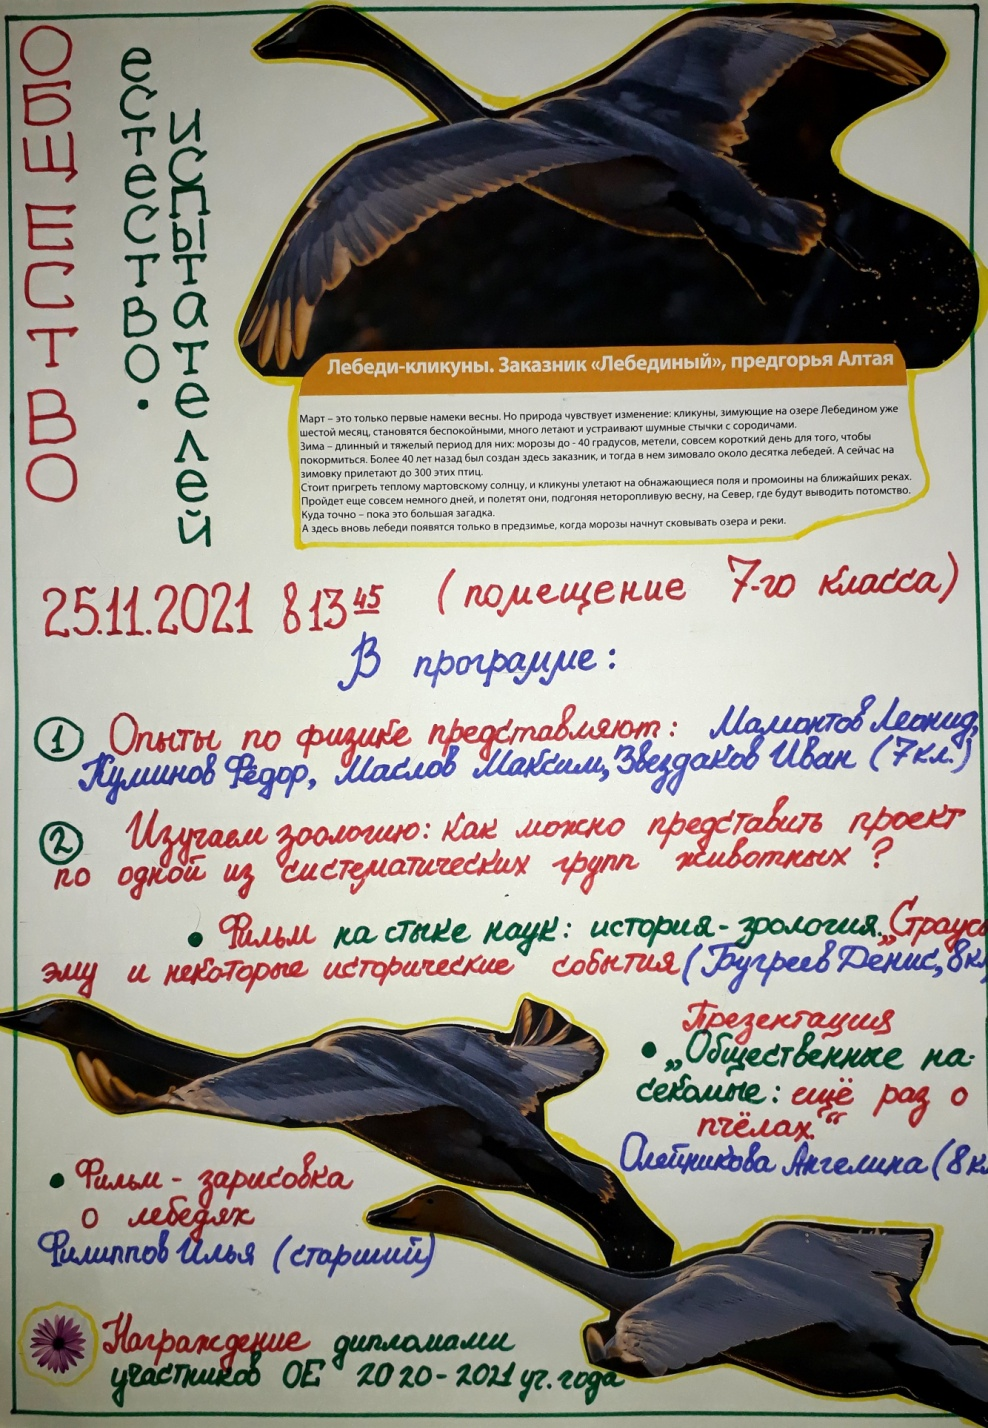 ОБЩЕСТВО
естество·
испытателей
Лебеди-кликуны. Заказник «Лебединый», предгорья Алтая
Март – это только первые намеки весны. Но природа чувствует изменение: кликуны, зимующие на озере Лебедином уже
шестой месяц, становятся беспокойными, много летают и устраивают шумные стычки с сородичами.
Зима – длинный и тяжелый период для них: морозы до - 40 градусов, метели, совсем короткий день для того, чтобы
покормиться. Более 40 лет назад был создан здесь заказник, и тогда в нем зимовало около десятка лебедей. А сейчас на
зимовку прилетают до 300 этих птиц.
Стоит пригреть теплому мартовскому солнцу, и кликуны улетают на обнажающиеся поля и промоины на ближайших реках.
Пройдет еще совсем немного дней, и полетят они, подгоняя неторопливую весну, на Север, где будут выводить потомство.
Куда точно – пока это большая загадка.
А здесь вновь лебеди появятся только в предзимье, когда морозы начнут сковывать озера и реки.
25.11.2021 в 13 45 (помещение 7-го класса)
В программе:
1 Опыты по физике представляют: Мамонтов Леонид,
Куминов Фёдор, Маслов Максим, Звездаков Иван (7 кл.)
2 Изучаем зоологию: как можно представить проект
по одной из систематических групп животных?
• Фильм на стыке наук: история-зоология. „Страусы
эму и некоторые исторические события (Бугреев Денис, 8 кл
Презентация
• „Общественные на-
секомые: ещё раз о
пчёлах.“
Олейникова Ангелина (8 кл
• Фильм - зарисовка
о лебедях
Филиппов Илья (старший)
Награждение дипломами
участников ОЕ 2020-2021 уч. года